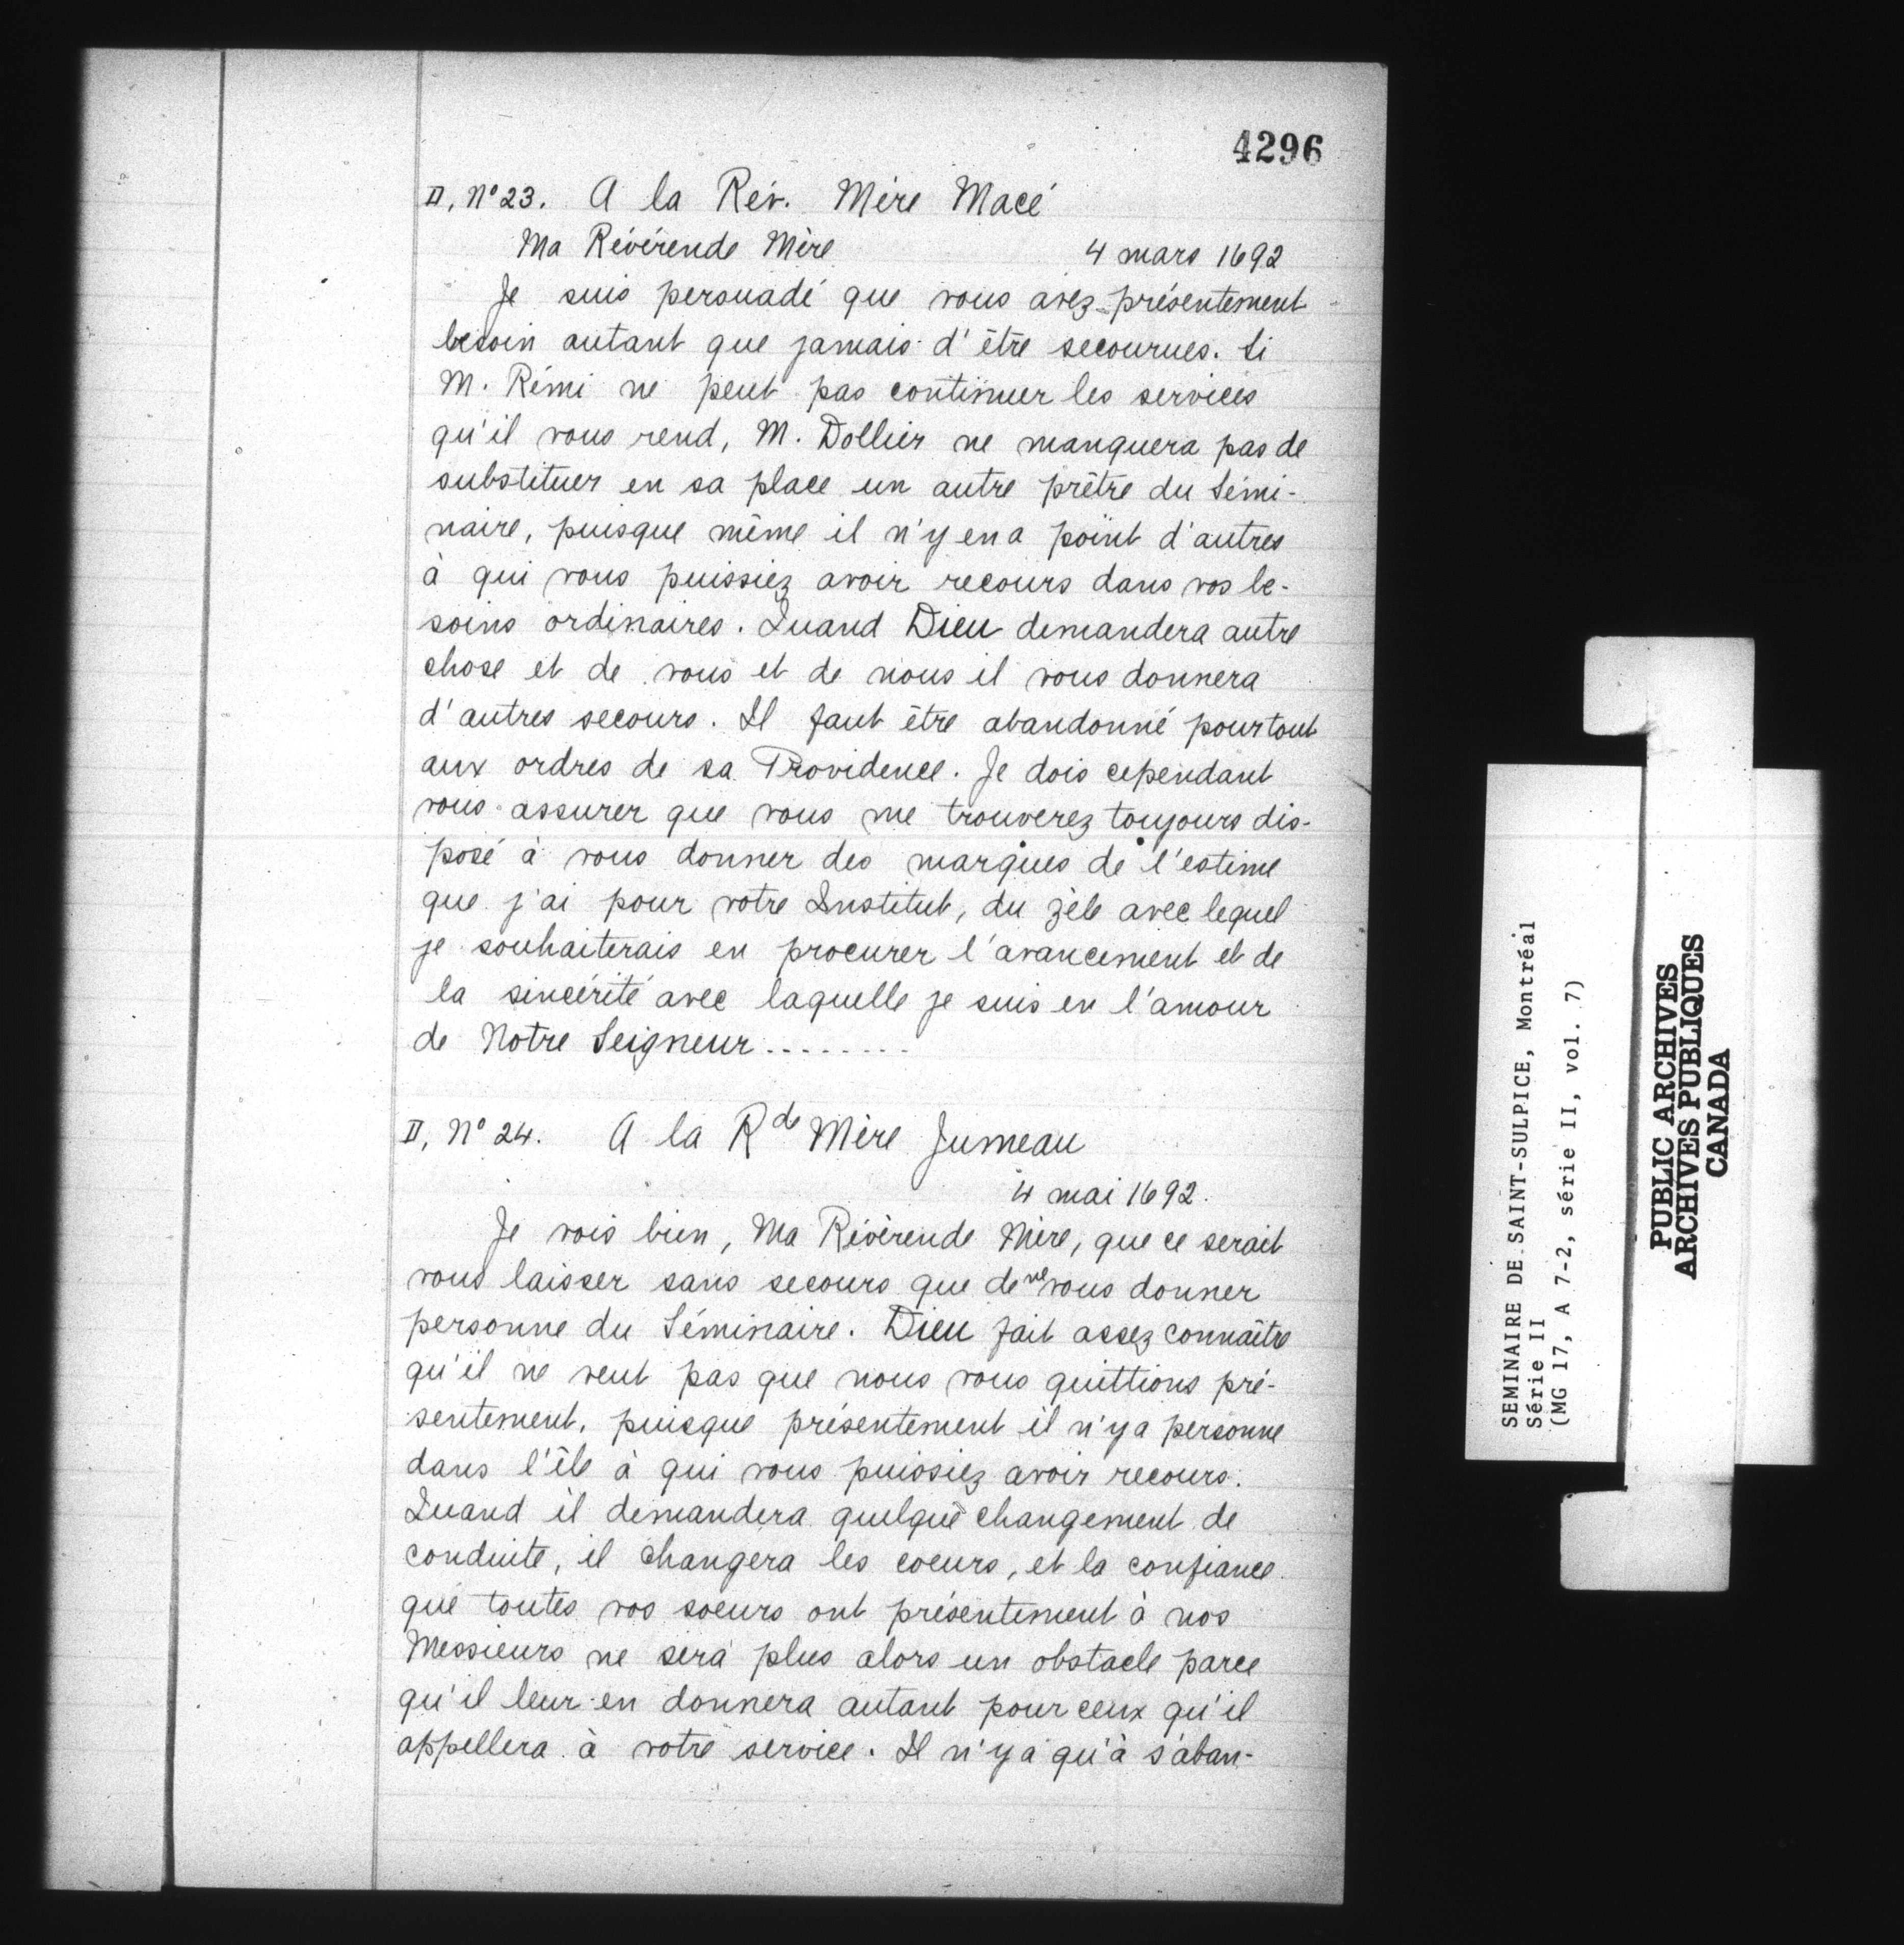 4296
II, N° 23. A la Rév. Mère Macé
Ma Révérende Mère 4 mars 1692
Je suis persuadé que vous avez présentement
besoin autant que jamais d'être secourues. Si
M. Rémi ne peut pas continuer les services
qu'il vous rend, M. Dollier ne manquera pas de
substituer en sa place un autre prêtre du Sémi-
naire, puisque même il n'y en a point d'autres
à qui vous puissiez avoir recours dans vos be-
soins ordinaires. Quand Dieu demandera autre
chose et de vous et de nous il vous donnera
d'autres secours. Il faut être abandonné pour tout
aux ordres de sa Providence. Je dois cependant
vous assurer que vous me trouverez toujours dis-
posé à vous donner des marques de l'estime
que j'ai pour votre Institut, du zèle avec lequel
je souhaiterais en procurer l'avancement et de
la sincérité avec laquelle je suis en l'amour
de Notre Seigneur........
II, N° 24. A la Rde Mère Jumeau
4 mai 1692.
Je vois bien, Ma Révérende Mère, que ce serait
vous laisser sans secours que de ne vous donner
personne du Séminaire. Dieu fait assez connaître
qu'il ne veut pas que nous vous quittions pré-
sentement, puisque présentement il n'y a personne
dans l'île à qui vous puissiez avoir recours.
Quand il demandera quelque changement de
conduite, il changera les coeurs, et la confiance
que toutes vos soeurs ont présentement à nos
Messieurs ne sera plus alors un obstacle parce
qu'il leur en donnera autant pour ceux qu'il
appellera à votre service. Il n'y a qu'à s'aban-
SEMINAIRE DE SAINT-SULPICE, Montréal
Série II
(MG 17, A 7-2, série II, vol. 7)
PUBLIC ARCHIVES
ARCHIVES PUBLIQUES
CANADA